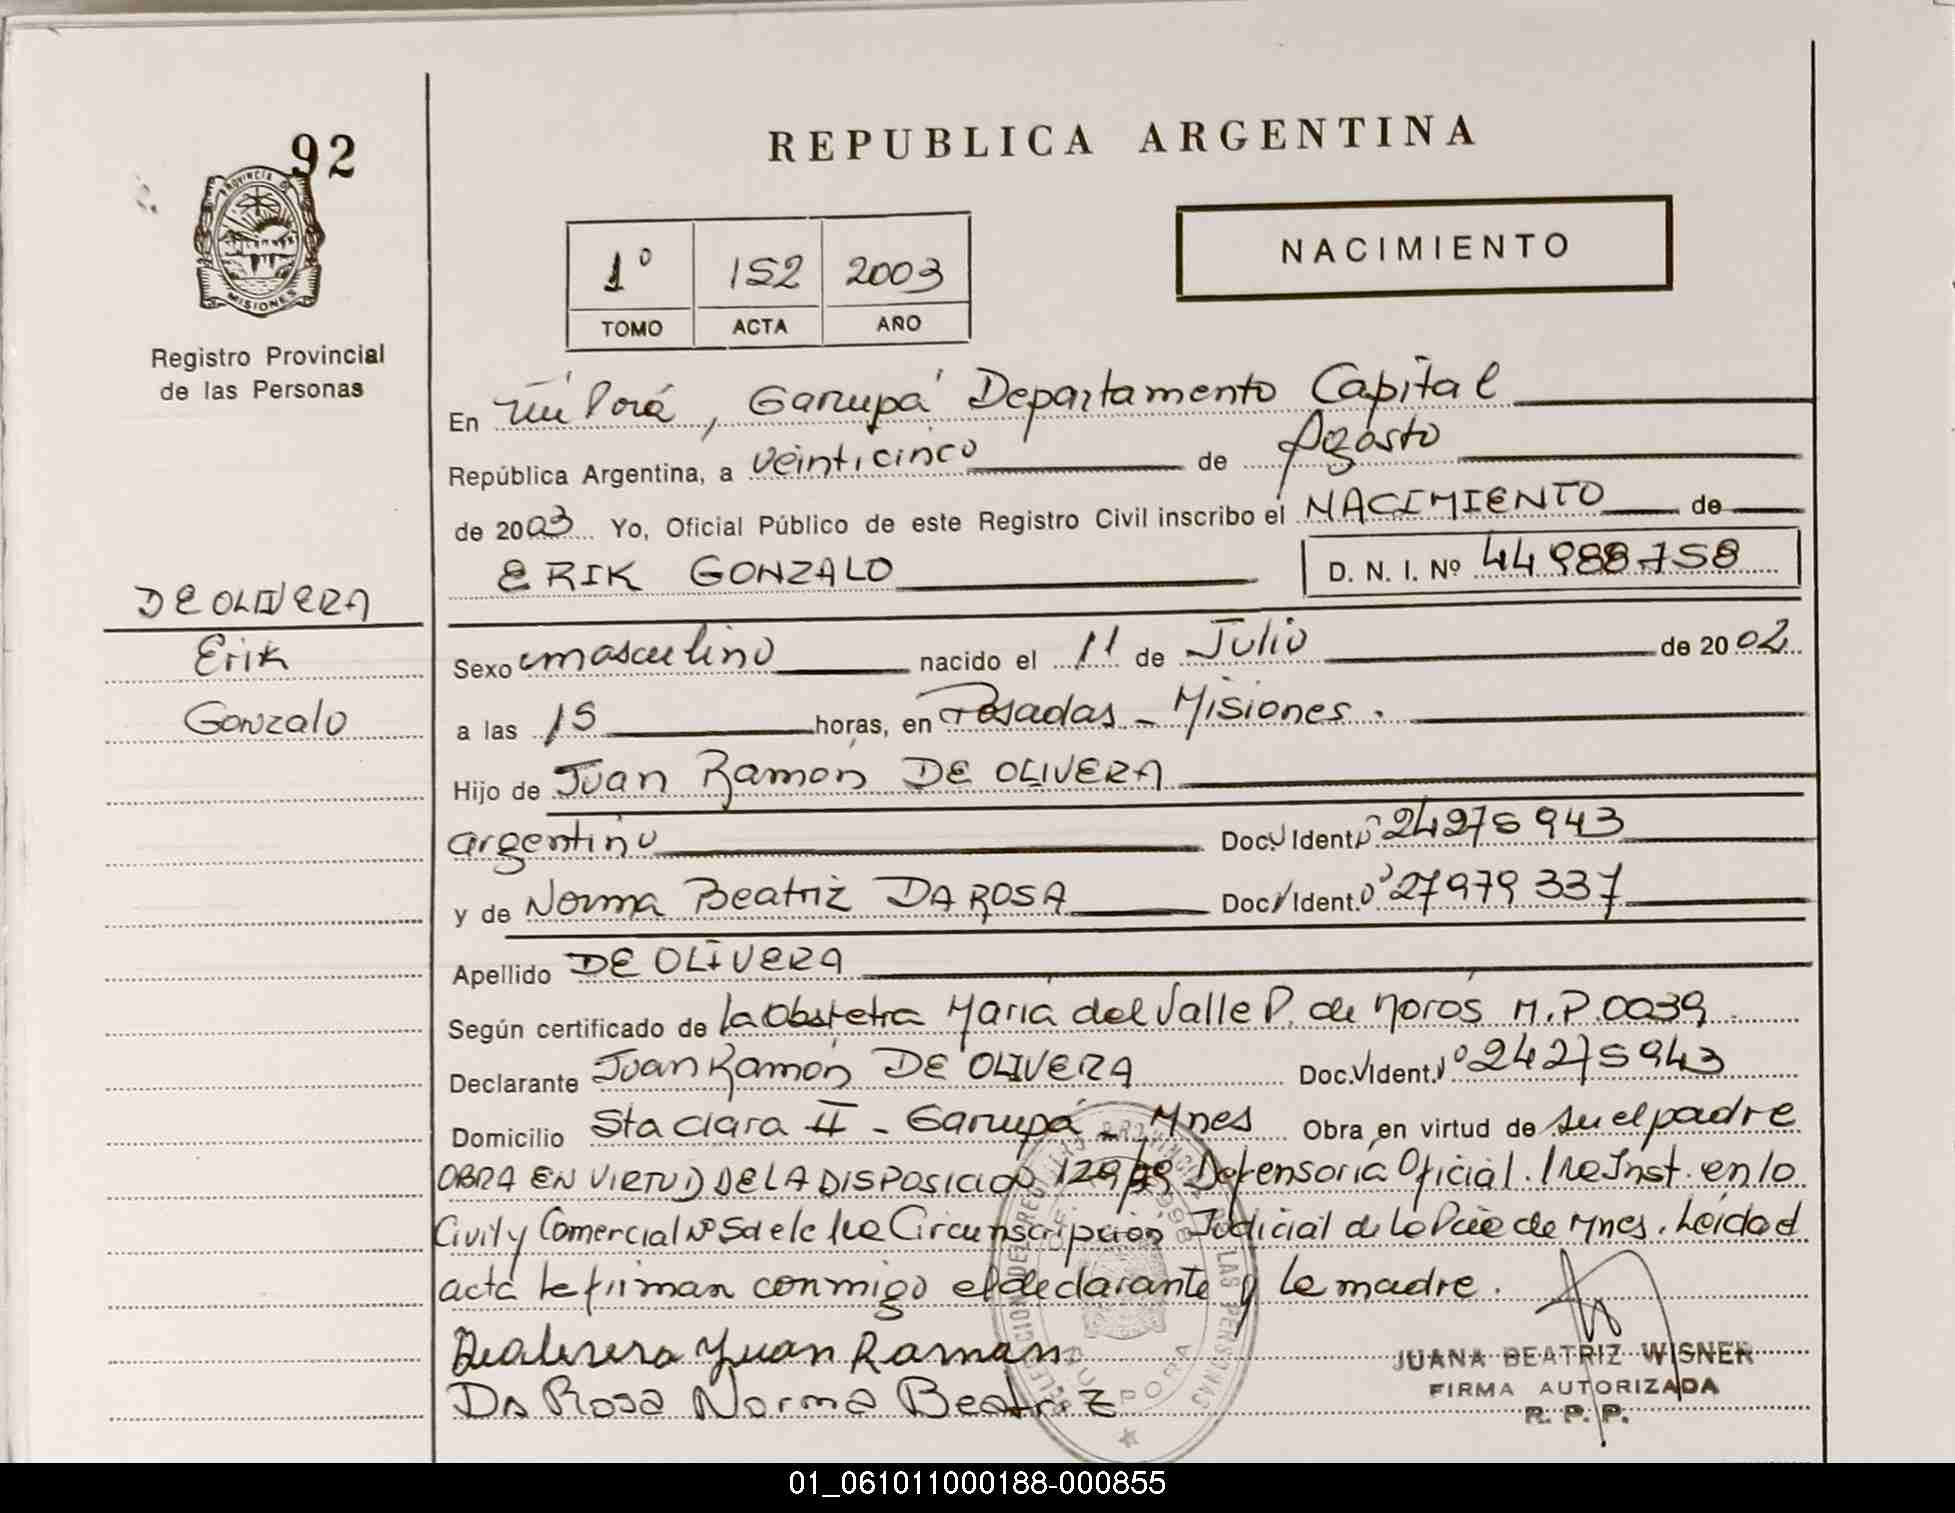 92
PROVINCIA DE
MISIONES
Registro Provincial
de las Personas
REPUBLICA ARGENTINA
1º 152 2003
TOMO ACTA AÑO
NACIMIENTO
En Ñu Porá, Garupá Departamento Capital
República Argentina, a veinticinco de Agosto
de 2003 Yo, Oficial Público de este Registro Civil inscribo el NACIMIENTO de
ERIK GONZALO D. N. I. Nº 44988758
DE OLIVERA
Erik
Gonzalo
Sexo masculino nacido el 11 de Julio de 2002
a las 15 horas, en Posadas - Misiones.
Hijo de Juan Ramón DE OLIVERA
argentino Doc. Ident. 24275943
y de Norma Beatriz DA ROSA Doc. Ident. 27979337
Apellido DE OLIVERA
Según certificado de la Obstetra María del Valle P. de Moros M.P. 0039
Declarante Juan Ramón DE OLIVERA Doc. Ident. 24275943
Domicilio Sta Clara II - Garupá - Mnes Obra en virtud de su el padre
OBRA EN VIRTUD DE LA DISPOSICION 129/99 Defensoría Oficial. 1ra Inst. en lo
Civil y Comercial Nº 5 de la 1ra Circunscripción Judicial de la Pcia de Mnes. Leída el
acta la firman conmigo el declarante y la madre.
Juan Ramon
Da Rosa Norma Beatriz
JUANA BEATRIZ WISNER
FIRMA AUTORIZADA
R. P. P.
01_061011000188-000855